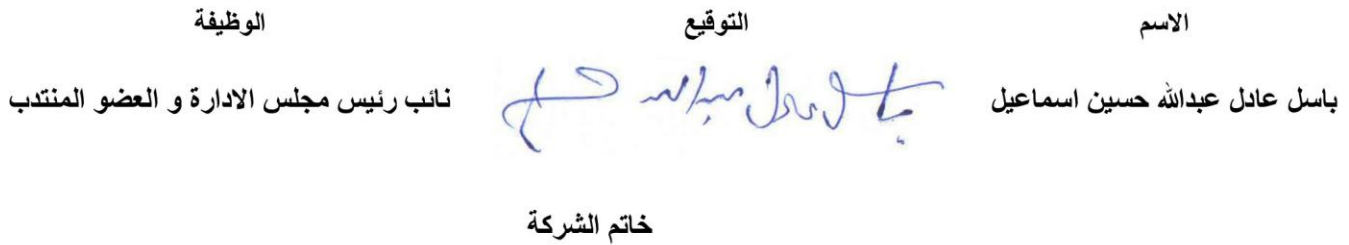 الاسم التوقيع الوظيفة
باسل عادل عبدالله حسين اسماعيل باسل عادل عبدالله نائب رئيس مجلس الادارة و العضو المنتدب
خاتم الشركة